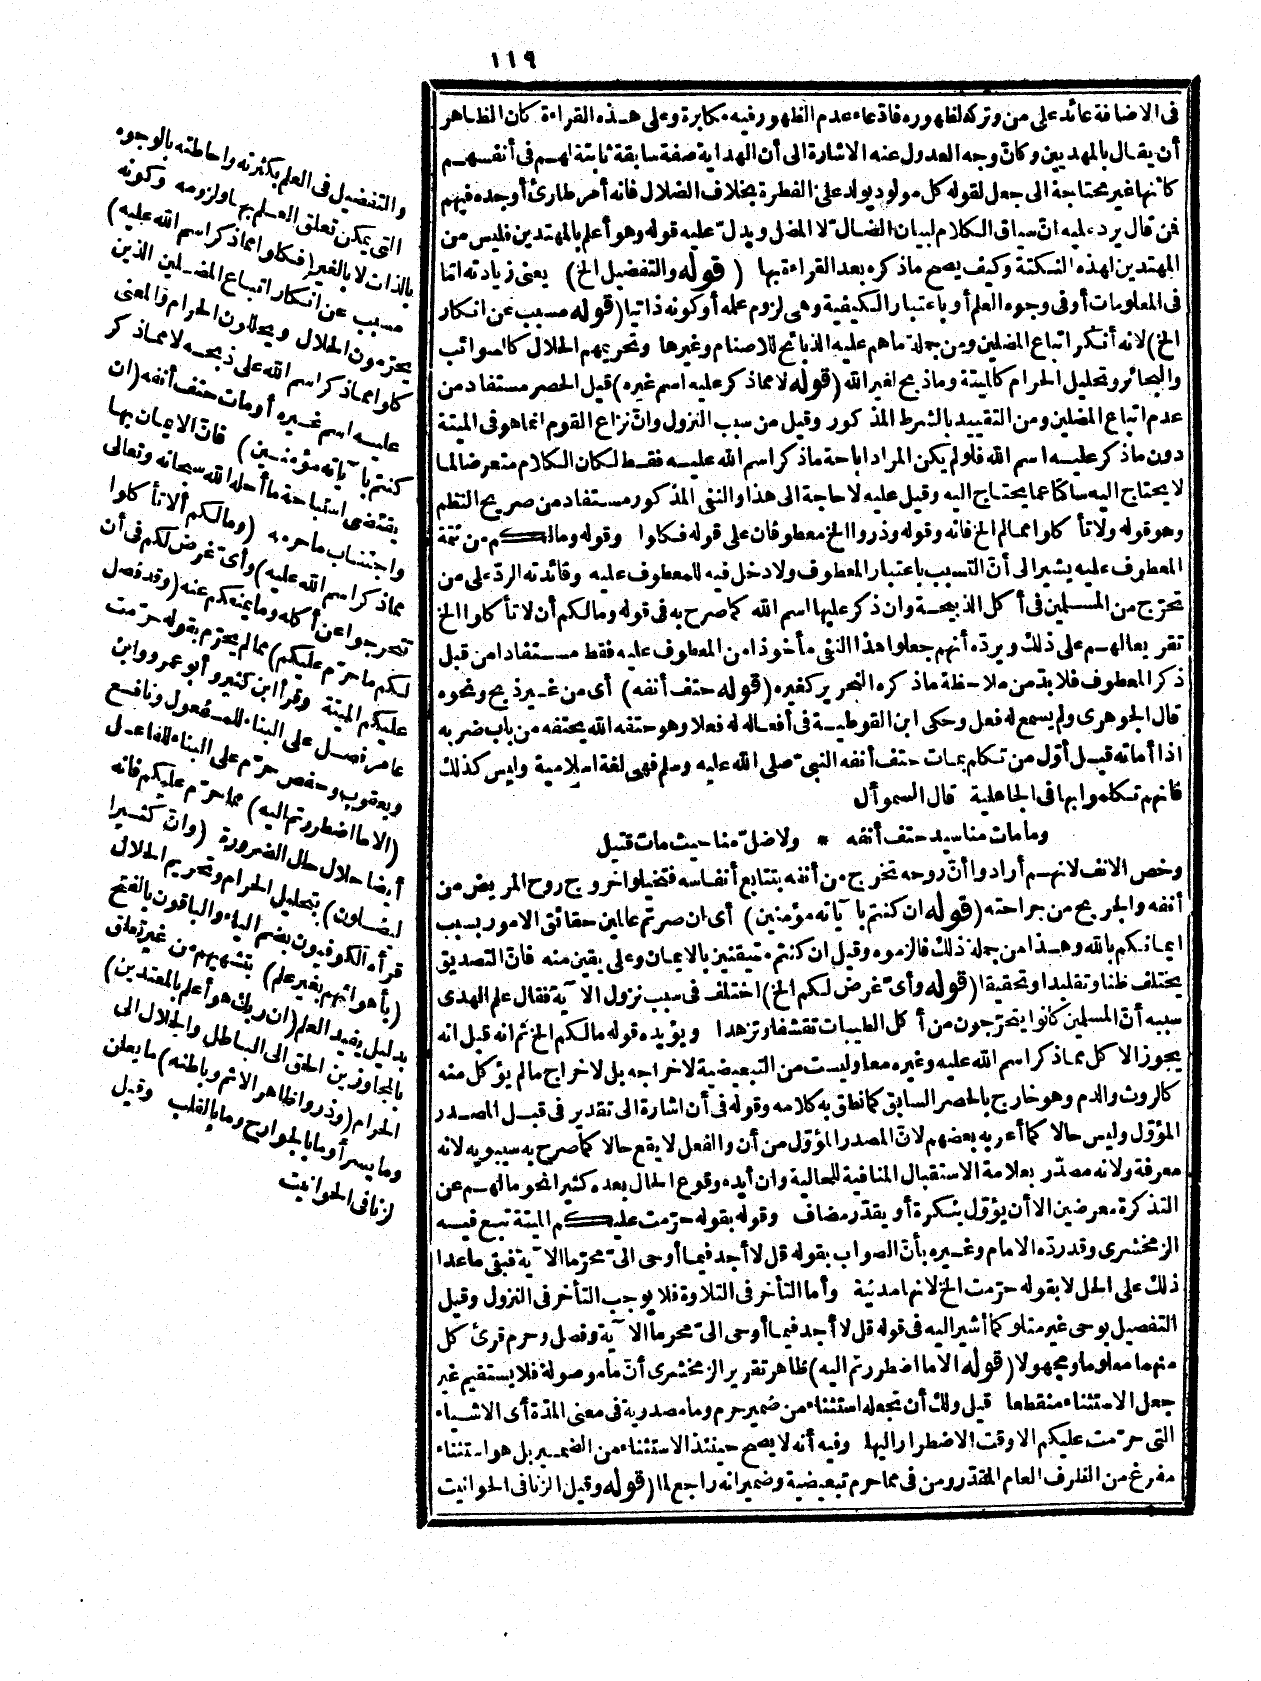 ١١٩
فى الاضافة عائد على من وتركه لظهوره فادّعاء عدم الظهور فيه مكابرة وعلى هذه القراءة كان الظاهر
أن يقال بالمهديين وكانّ وجه العدول عنه الاشارة الى أن الهداية صفة سابقة ثابتة لهم فى أنفسهم
كأنها غير محتاجة الى جعل لقوله كل مولود يولد على الفطرة بخلاف الضلال فانه أمر طارئ أوجده فيهم
فمن قال يرد عليه انّ سياق الكلام لبيان الضالّ لا المضل ويدلّ عليه قوله وهو أعلم بالمهتدين فليس من
المهتدين لهذه النكتة وكيف يصح ما ذكره بعد القراءة بها (قوله والتفضيل الخ) يعنى زيادته اتما
فى المعلومات أو فى وجوه العلم أو باعتبار الكيفية وهى لزوم علمه أو كونه ذاتيا (قوله مسبب عن انكار
الخ) لانه أنكر اتباع المضلين ومن جملة ما هم عليه الذبائح للاصنام وغيرها وتحريمهم الحلال كالسوائب
والبحائر وتحليل الحرام كالميتة وما ذبح لغير الله (قوله لا مما ذكر عليه اسم غيره) قيل الحصر مستفاد من
عدم اتباع المضلين ومن التقييد بالشرط المذكور وقيل من سبب النزول وانّ نزاع القوم انما هو فى الميتة
دون ما ذكر عليه اسم الله فلو لم يكن المراد اباحة ما ذكر اسم الله عليه فقط لكان الكلام متعرضا لما
لا يحتاج اليه ساكتا عما يحتاج اليه وقيل عليه لا حاجة الى هذا والنفى المذكور مستفاد من صريح النظم
وهو قوله ولا تأكلوا مما لم الخ فانه وقوله وذروا الخ معطوفان على قوله فكلوا وقوله ومالكم من تتمة
المعطوف عليه يشير الى أنّ التسبب باعتبار المعطوف ولا دخل فيه للمعطوف عليه وفائدته الردّ على من
تحرّج من المسلمين فى أكل الذبيحة وان ذكر عليها اسم الله كما صرح به فى قوله ومالكم أن لا تأكلوا الخ
تقريعا لهم على ذلك ويردّه أنهم جعلوا هذا النفى مأخوذا من المعطوف عليه فقط مستفادا من قبل
ذكر المعطوف فلابدّ من ملاحظة ما ذكره التحرير كغيره (قوله حتف أنفه) أى من غير ذبح ونحوه
قال الجوهرى ولم يسمع له فعل وحكى ابن القوطية فى أفعاله له فعلا وهو حتفه الله يحتفه من باب ضربه
اذا أماته قيل أوّل من تكلم بمات حتف أنفه النبىّ صلى الله عليه وسلم فهى لغة اسلامية وليس كذلك
فانهم تكلموا بها فى الجاهلية قال السموأل
وما مات منا سيد حتف أنفه * ولا ضلّ منا حيث مات قتيل
وخص الانف لانهم أرادوا أنّ روحه تخرج من أنفه بتتابع أنفاسه فتخيلوا خروج روح المريض من
أنفه والجريح من جراحته (قوله ان كنتم بآياته مؤمنين) أى ان صرتم عالمين حقائق الامور بسبب
ايمانكم بالله وهذا من جملة ذلك فالزموه وقيل ان كنتم متيقنين بالايمان وعلى يقين منه فانّ التصديق
يختلف ظنا وتقليدا وتحقيقا (قوله وأىّ غرض لكم الخ) اختلف فى سبب نزول الآية فقال علم الهدى
سببه أنّ المسلمين كانوا يتحرّجون من أكل الطيبات تقشفا وتزهدا ويؤيده قوله مالكم الخ ثم انه قيل انه
يجوز الاكل مما ذكر اسم الله عليه وغيره معا وليست من التبعيضية لاخراجه بل لاخراج ما لم يؤكل منه
كالروث والدم وهو خارج بالحصر السابق كما نطق به كلامه وقوله فى أن اشارة الى تقدير فى قبل المصدر
المؤوّل وليس حالا كما أعربه بعضهم لانّ المصدر المؤوّل من أن والفعل لا يقع حالا كما صرح به سيبويه لانه
معرفة ولانه مصدّر بعلامة الاستقبال المنافية للحالية وان أيده وقوع الحال بعده كثيرا نحو مالهم عن
التذكرة معرضين الا أن يؤوّل بنكرة أو يقدّر مضاف وقوله بقوله حرّمت عليكم الميتة تبع فيه
الزمخشرى وقد ردّه الامام وغيره بأنّ الصواب بقوله قل لا أجد فيما أوحى الىّ محرّما الآية فبقى ما عدا
ذلك على الحل لا بقوله حرّمت الخ لانها مدنية وأما التأخر فى التلاوة فلا يوجب التأخر فى النزول وقيل
التفصيل بوحى غير متلو كما أشير اليه فى قوله قل لا أجد فيما أوحى الىّ محرما الآية وفصل وحرم قرئ كل
منهما معلوما ومجهولا (قوله الا ما اضطررتم اليه) ظاهر تقرير الزمخشرى أنّ ما موصولة فلا يستقيم غير
جعل الاستثناء منقطعا قيل ولك أن تجعله استثناء من ضمير حرم وما مصدرية فى معنى المدّة أى الاشياء
التى حرّمت عليكم الا وقت الاضطرار اليها وفيه أنه لا يصح حينئذ الاستثناء من الضمير بل هو استثناء
مفرغ من الظرف العام المقدّر ومن فى مما حرم تبعيضية وضميرانه راجع لما (قوله وقيل الزنا فى الحوانيت
والتفضيل فى العلم بكثرته واحاطته بالوجوه
التى يمكن تعلق العلم بها ولزومه وكونه
بالذات لا بالغير (فكلوا مما ذكر اسم الله عليه)
مسبب عن انكار اتباع المضلين الذين
يحرّمون الحلال ويحللون الحرام والمعنى
كلوا مما ذكر اسم الله على ذبحه لا مما ذكر
عليه اسم غيره أو مات حتف أنفه (ان
كنتم بآياته مؤمنين) فانّ الايمان بها
يقتضى استباحة ما أحله الله سبحانه وتعالى
واجتناب ما حرمه (ومالكم ألا تأكلوا
مما ذكر اسم الله عليه) وأىّ غرض لكم فى أن
تتحرجوا عن أكله وما يمنعكم عنه (وقد فصل
لكم ما حرّم عليكم) مما لم يحرّم بقوله حرّمت
عليكم الميتة وقرأ ابن كثير وأبو عمرو وابن
عامر فصل على البناء للمفعول ونافع
ويعقوب وحفص حرّم على البناء للفاعل
(الا ما اضطررتم اليه) مما حرّم عليكم فانه
أيضا حلال حال الضرورة (وانّ كثيرا
ليضلون) بتحليل الحرام وتحريم الحلال
قرأه الكوفيون بضم الياء والباقون بالفتح
(بأهوائهم بغير علم) بتشهيهم من غير تعلق
بدليل يفيد العلم (ان ربك هو أعلم بالمعتدين)
بالمجاوزين الحق الى الباطل والحلال الى
الحرام (وذروا ظاهر الاثم وباطنه) ما يعلن
وما يسر أو ما بالجوارح وما بالقلب وقيل
الزنا فى الحوانيت